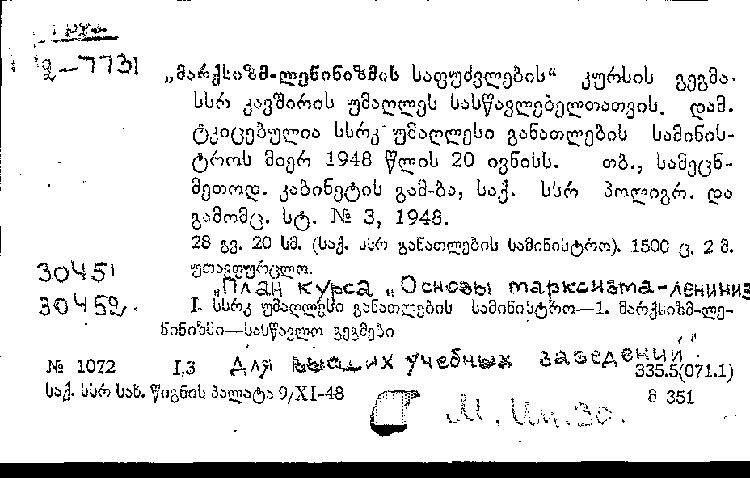 2-7731
„მარქსიზმ-ლენინიზმის საფუძვლების“ კურსის გეგმა.
სსრ კავშირის უმაღლეს სასწავლებელთათვის. დამ.
ტკიცებულია სსრკ უმაღლესი განათლების სამინის-
ტროს მიერ 1948 წლის 20 ივნისს. თბ., სამეცნ-
მეთოდ. კაბინეტის გამ-ბა, საქ. სსრ პოლიგრ. და
გამომც. სტ. № 3, 1948.
28 გვ. 20 სმ. (საქ. სსრ განათლების სამინისტრო). 1500 ც. 2 მ.
30451 უთავფურცლო.
„План курса „Основы марксизма-лениниз
30452. I. სსრკ უმაღლესი განათლების სამინისტრო—1. მარქსიზმ-ლე-
ნინიზმი—სასწავლო გეგმები
№ 1072 I,3 Для высших учебных заведений“
335.5(071.1)
საქ. სსრ სახ. წიგნის პალატა 9/XI-48
მ 351